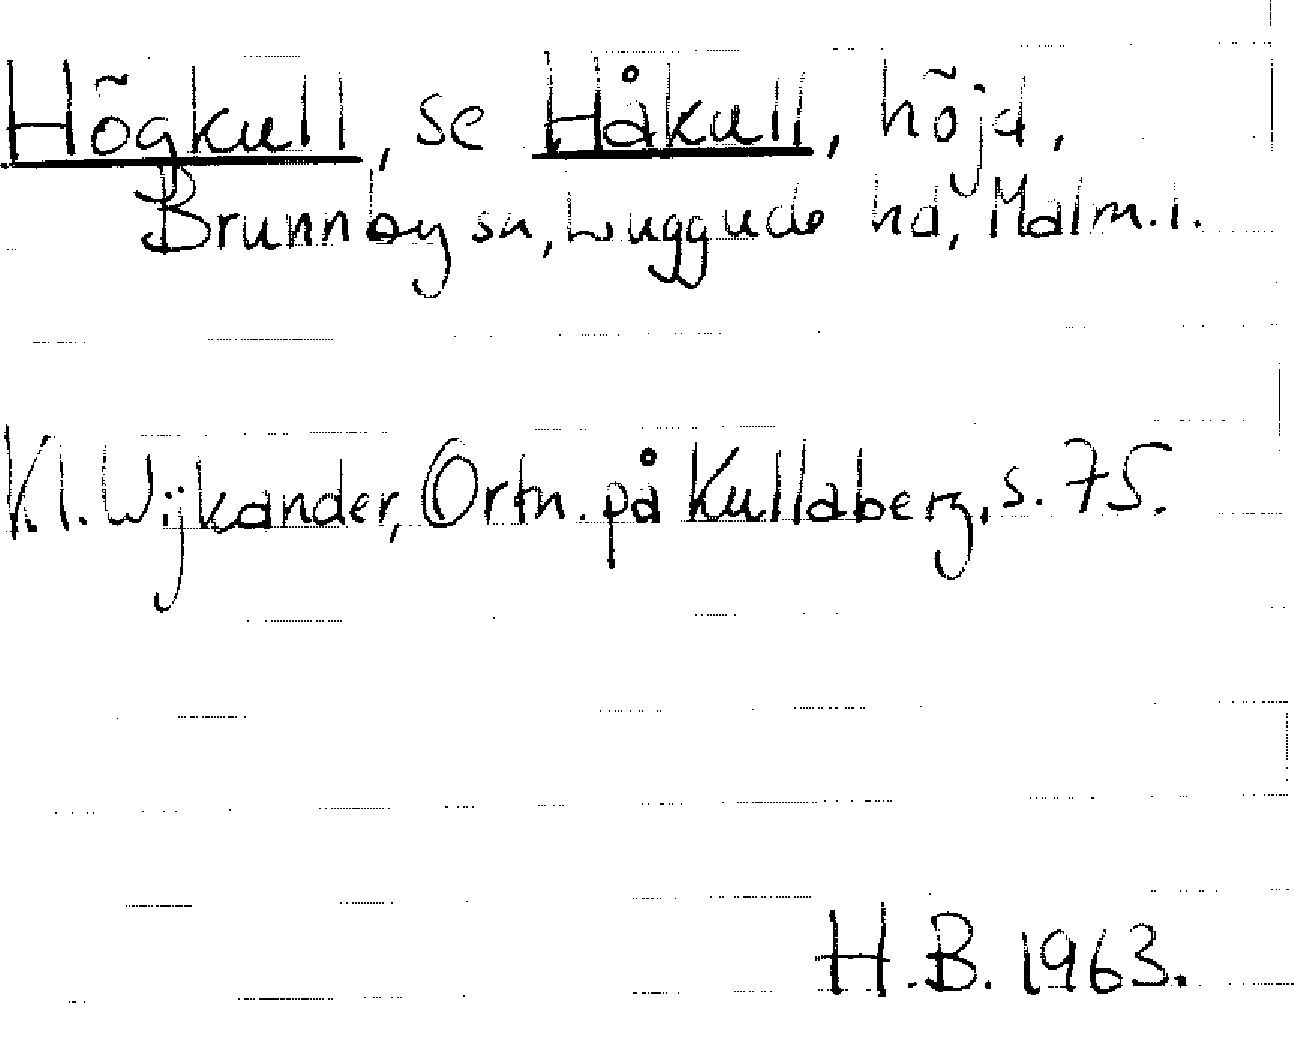 Högkull, se Håkull, höjd,
Brunnby sn, Luggude hd, Malm. l.
Kl. Wijkander, Ortn. på Kullaberg, s. 75.
H.B. 1963.